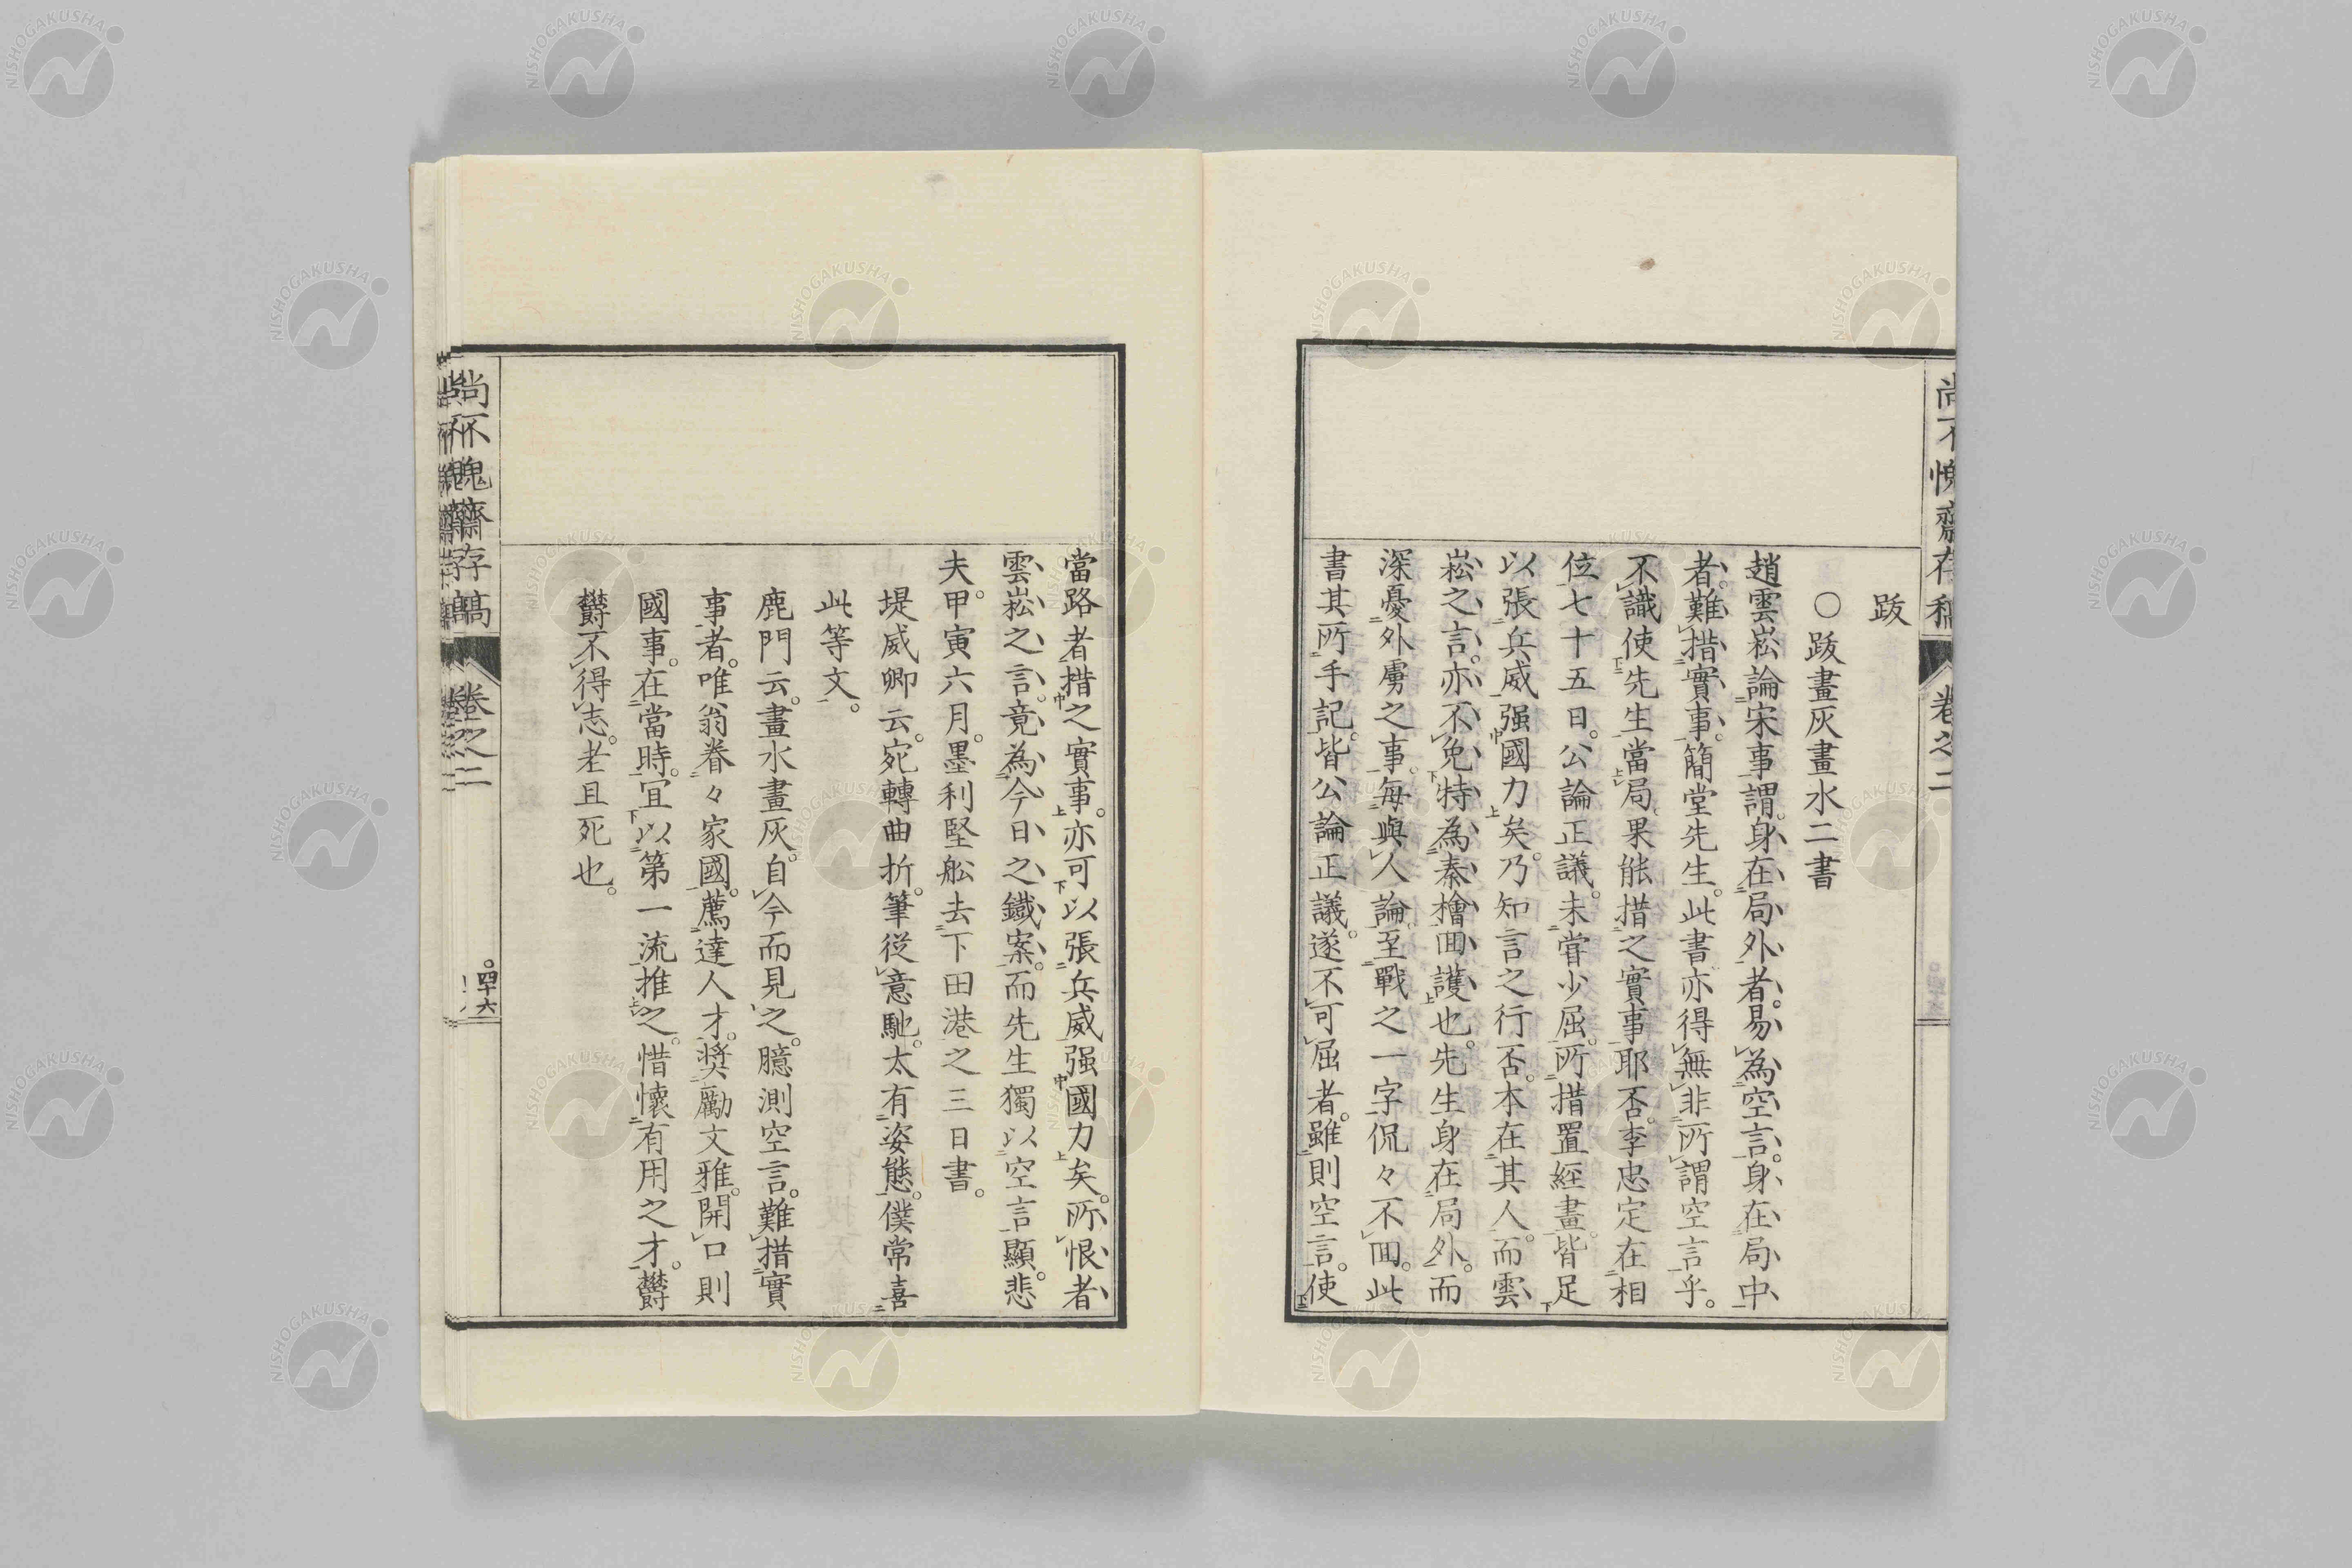 尚不愧齋存稿 卷之二
跋
○跋畫灰畫水二書
趙雲崧論宋事謂。身在局外者。易為空言。身在局中
者。難措實事。簡堂先生。此書亦得無非所謂空言乎。
不識使先生當局果能措之實事耶否。李忠定在相
位七十五日。公論正議。未甞少屈。所措置經畫。皆足
以張兵威强國力矣。乃知言之行否。本在其人。而雲
崧之言。亦不免特為秦檜囬護也。先生身在局外。而
深憂外虜之事。每與人論至戰之一字侃々不囬。此
書其所手記。皆公論正議。遂不可屈者。雖則空言。使
當路者措之實事。亦可以張兵威强國力矣。所恨者
雲崧之言。竟為今日之鐵案。而先生獨以空言顯。悲
夫。甲寅六月。墨利堅舩去下田港之三日書。
堤威卿云。宛轉曲折。筆從意馳。太有姿態。僕常喜
此等文。
鹿門云。畫水畫灰。自今而見之。臆測空言。難措實
事者。唯翁眷々家國。薦達人才。奬勵文雅。開口則
國事。在當時。宜以第一流推之。惜懷有用之才。欝
欝不得志。老且死也。
尚不愧齋存稿 卷之二 四十六
NISHOGAKUSHA